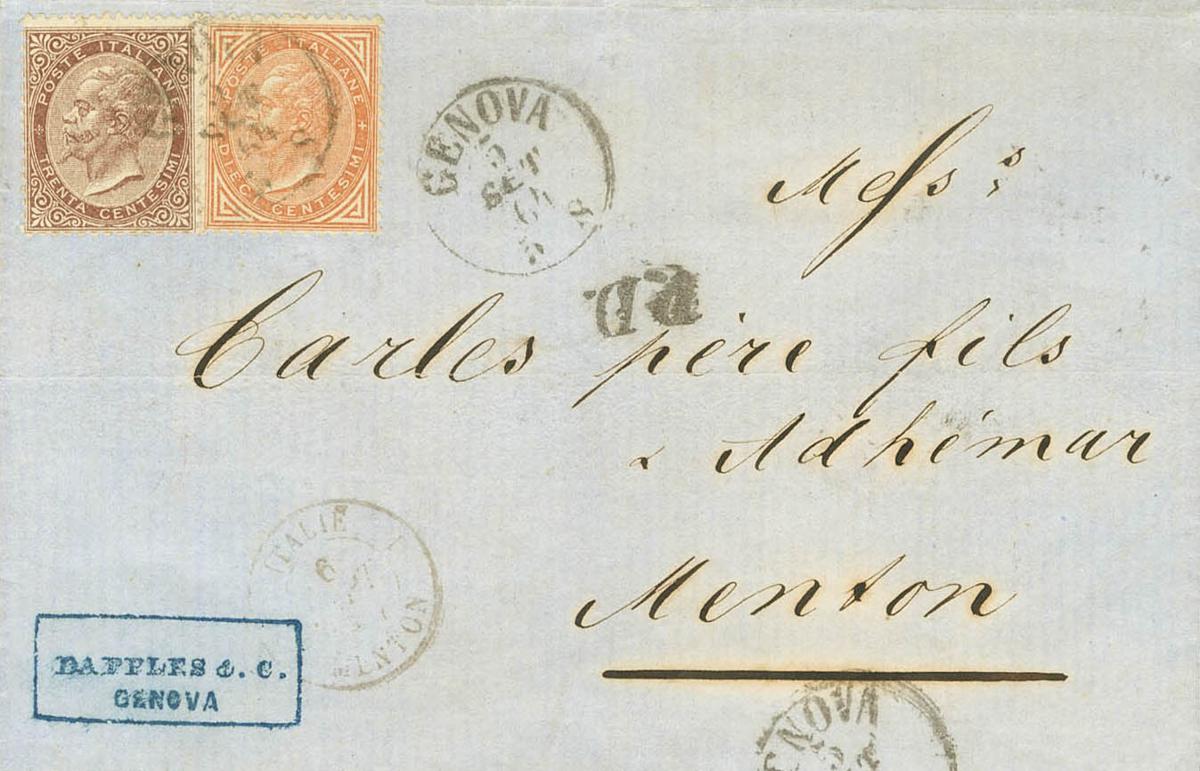 POSTE ITALIANE
TRENTA CENTESIMI
POSTE ITALIANE
DIECI CENTESIMI
GENOVA
5
SET
65
P.D.
Mess^rs
Carles père fils
Adhémar
Menton
ITALIE
6
MENTON
DAPPLES & C.
GENOVA
GENOVA